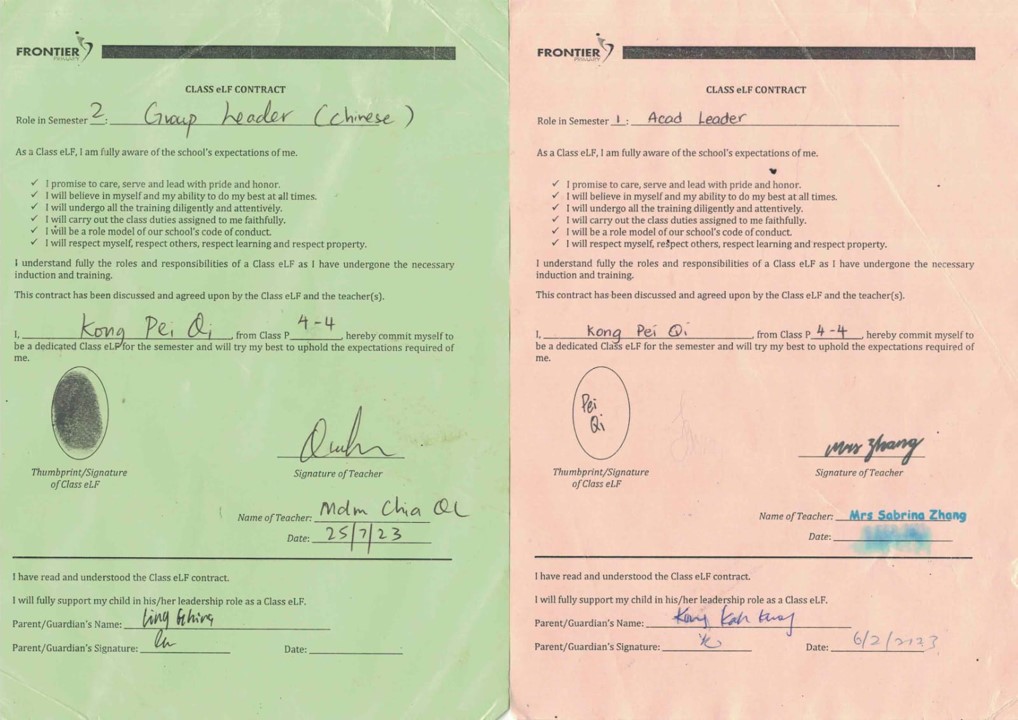 FRONTIER
PRIMARY
CLASS eLF CONTRACT
Role in Semester 2: Group Leader (Chinese)
As a Class eLF, I am fully aware of the school's expectations of me.
✓ I promise to care, serve and lead with pride and honor.
✓ I will believe in myself and my ability to do my best at all times.
✓ I will undergo all the training diligently and attentively.
✓ I will carry out the class duties assigned to me faithfully.
✓ I will be a role model of our school's code of conduct.
✓ I will respect myself, respect others, respect learning and respect property.
I understand fully the roles and responsibilities of a Class eLF as I have undergone the necessary
induction and training.
This contract has been discussed and agreed upon by the Class eLF and the teacher(s).
I, Kong Pei Qi, from Class P 4-4, hereby commit myself to
be a dedicated Class eLF for the semester and will try my best to uphold the expectations required of
me.
Thumbprint/Signature
of Class eLF
Signature of Teacher
Name of Teacher: Mdm Chia QL
Date: 25/7/23
I have read and understood the Class eLF contract.
I will fully support my child in his/her leadership role as a Class eLF.
Parent/Guardian's Name: Ling
Parent/Guardian's Signature:
Date:
FRONTIER
PRIMARY
CLASS eLF CONTRACT
Role in Semester 1: Acad Leader
As a Class eLF, I am fully aware of the school's expectations of me.
✓ I promise to care, serve and lead with pride and honor.
✓ I will believe in myself and my ability to do my best at all times.
✓ I will undergo all the training diligently and attentively.
✓ I will carry out the class duties assigned to me faithfully.
✓ I will be a role model of our school's code of conduct.
✓ I will respect myself, respect others, respect learning and respect property.
I understand fully the roles and responsibilities of a Class eLF as I have undergone the necessary
induction and training.
This contract has been discussed and agreed upon by the Class eLF and the teacher(s).
I, Kong Pei Qi, from Class P 4-4, hereby commit myself to
be a dedicated Class eLF for the semester and will try my best to uphold the expectations required of
me.
Pei
Qi
Mrs Zhang
Thumbprint/Signature
of Class eLF
Signature of Teacher
Name of Teacher: Mrs Sabrina Zhang
Date:
I have read and understood the Class eLF contract.
I will fully support my child in his/her leadership role as a Class eLF.
Parent/Guardian's Name: Kong Kah
Parent/Guardian's Signature:
Date: 6/2/2023